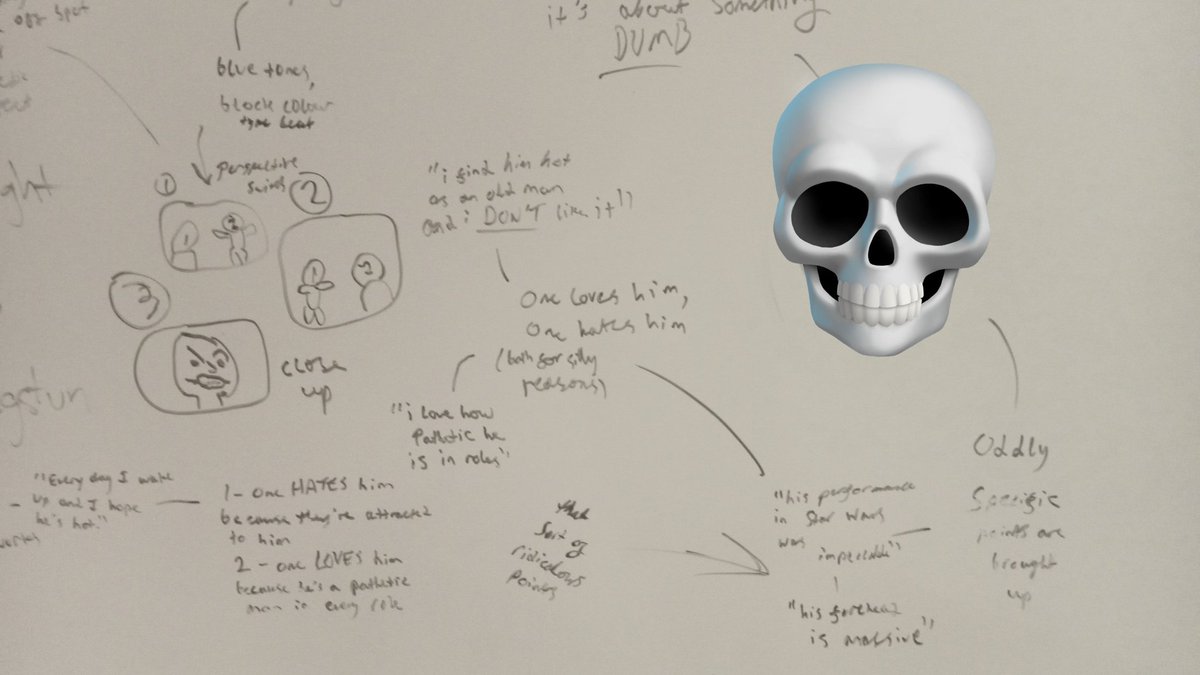 off spot
it's about something
DUMB
blue tones,
block colour
type beat
perspective
swings
1
2
3
close
up
"i find him hot
as an old man
and i DON'T like it!"
One loves him,
One hates him
(both for silly
reasons)
"i love how
pathetic he
is in roles"
"Every day I wake
up and I hope
he's hot."
1 - one HATES him
because they're attracted
to him
2 - one LOVES him
because he's a pathetic
man in every role
sort of
ridiculous
points
"his performance
in Star Wars
was impeccable"
"his forehead
is massive"
Oddly
Specific
points are
brought
up